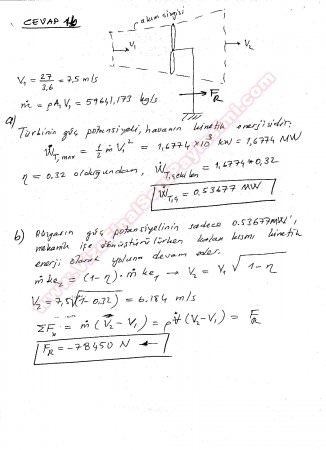 CEVAP 16
akım çizgisi
V₁
V₂
F_R
V₁ = 27/3,6 = 7,5 m/s
ṁ = ρA₁V₁ = 59641,173 kg/s
a) Türbinin güç potansiyeli, havanın kinetik enerjisidir.
Ẇ_T,max = 1/2 ṁ V₁² = 1,6774 x 10³ kW = 1,6774 MW
η = 0.32 olduğundan, Ẇ_T, = 1,6774 * 0,32
Ẇ_T,g = 0.53677 MW
b) Rüzgarın güç potansiyelinin sadece 0.53677 MW'ı
mekanik işe dönüştürülürken kalan kısmı kinetik
enerji olarak yoluna devam eder.
ṁ ke₂ = (1-η) . ṁ ke₁ → V₂ = V₁ √1-η
V₂ = 7,5 √(1-0.32) = 6.184 m/s
ΣF = ṁ (V₂ - V₁) = ρV̇ (V₂ - V₁) = F_R
F_R = -78450 N ←